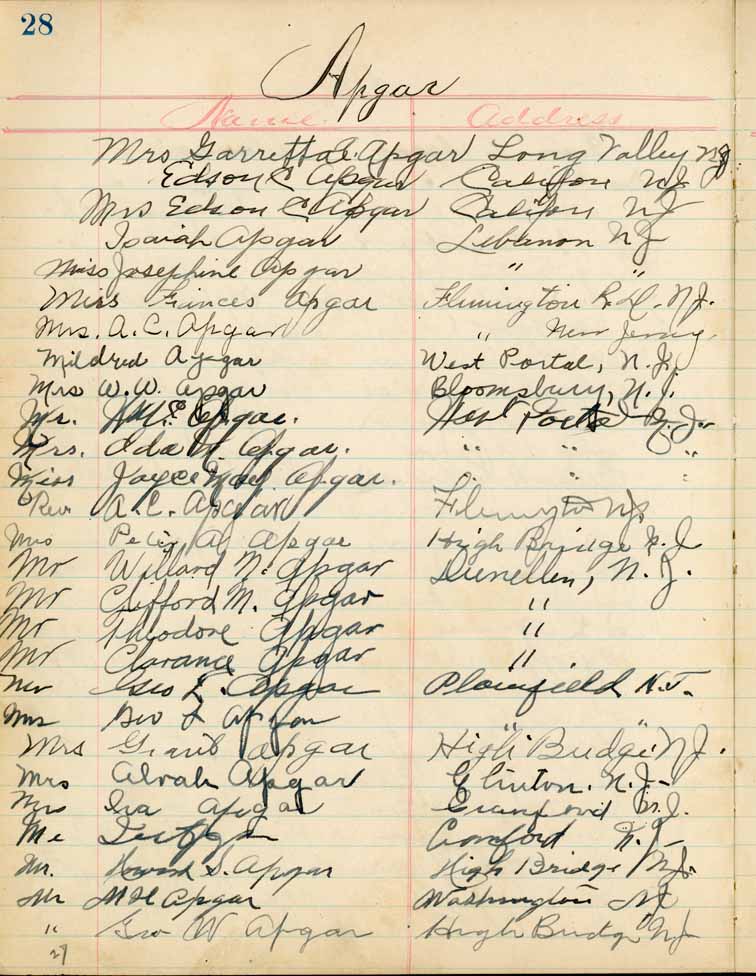 28
Apgar
Name Address
Mrs Garretta E. Apgar Long Valley NJ
Edson C Apgar Califon NJ
Mrs Edson C Apgar Califon NJ
Isaiah Apgar Lebanon NJ
Miss Josephine Apgar " "
Miss Frances Apgar Flemington R.D. N.J.
Mrs. A. C. Apgar " New Jersey
Mildred Apgar West Portal, N.J.
Mrs W. W. Apgar Bloomsbury, N.J.
Mr. Apgar. West Portal N.J.
Mrs. Ida Apgar. " " "
Miss Joyce Mae Apgar. " " "
Rev A. C. Apgar Flemington NJ
Mrs Peter A Apgar High Bridge N. J
Mr Willard N. Apgar Dunellen, N. J.
Mr Clifford M. Apgar "
Mr Theodore Apgar "
Mr Clarance Apgar "
Mr Geo L. Apgar Plainfield N.J.
Mrs Geo L Apgar " "
Mrs Apgar High Bridge NJ.
Mrs Alvah Apgar Clinton. N.J.
Mrs Iva Apgar Cranford N.J.
Mr Cranford N.J.
Mr. Howard S. Apgar High Bridge N.J.
Mr M H Apgar Washington NJ
" Geo W Apgar High Bridge NJ
27